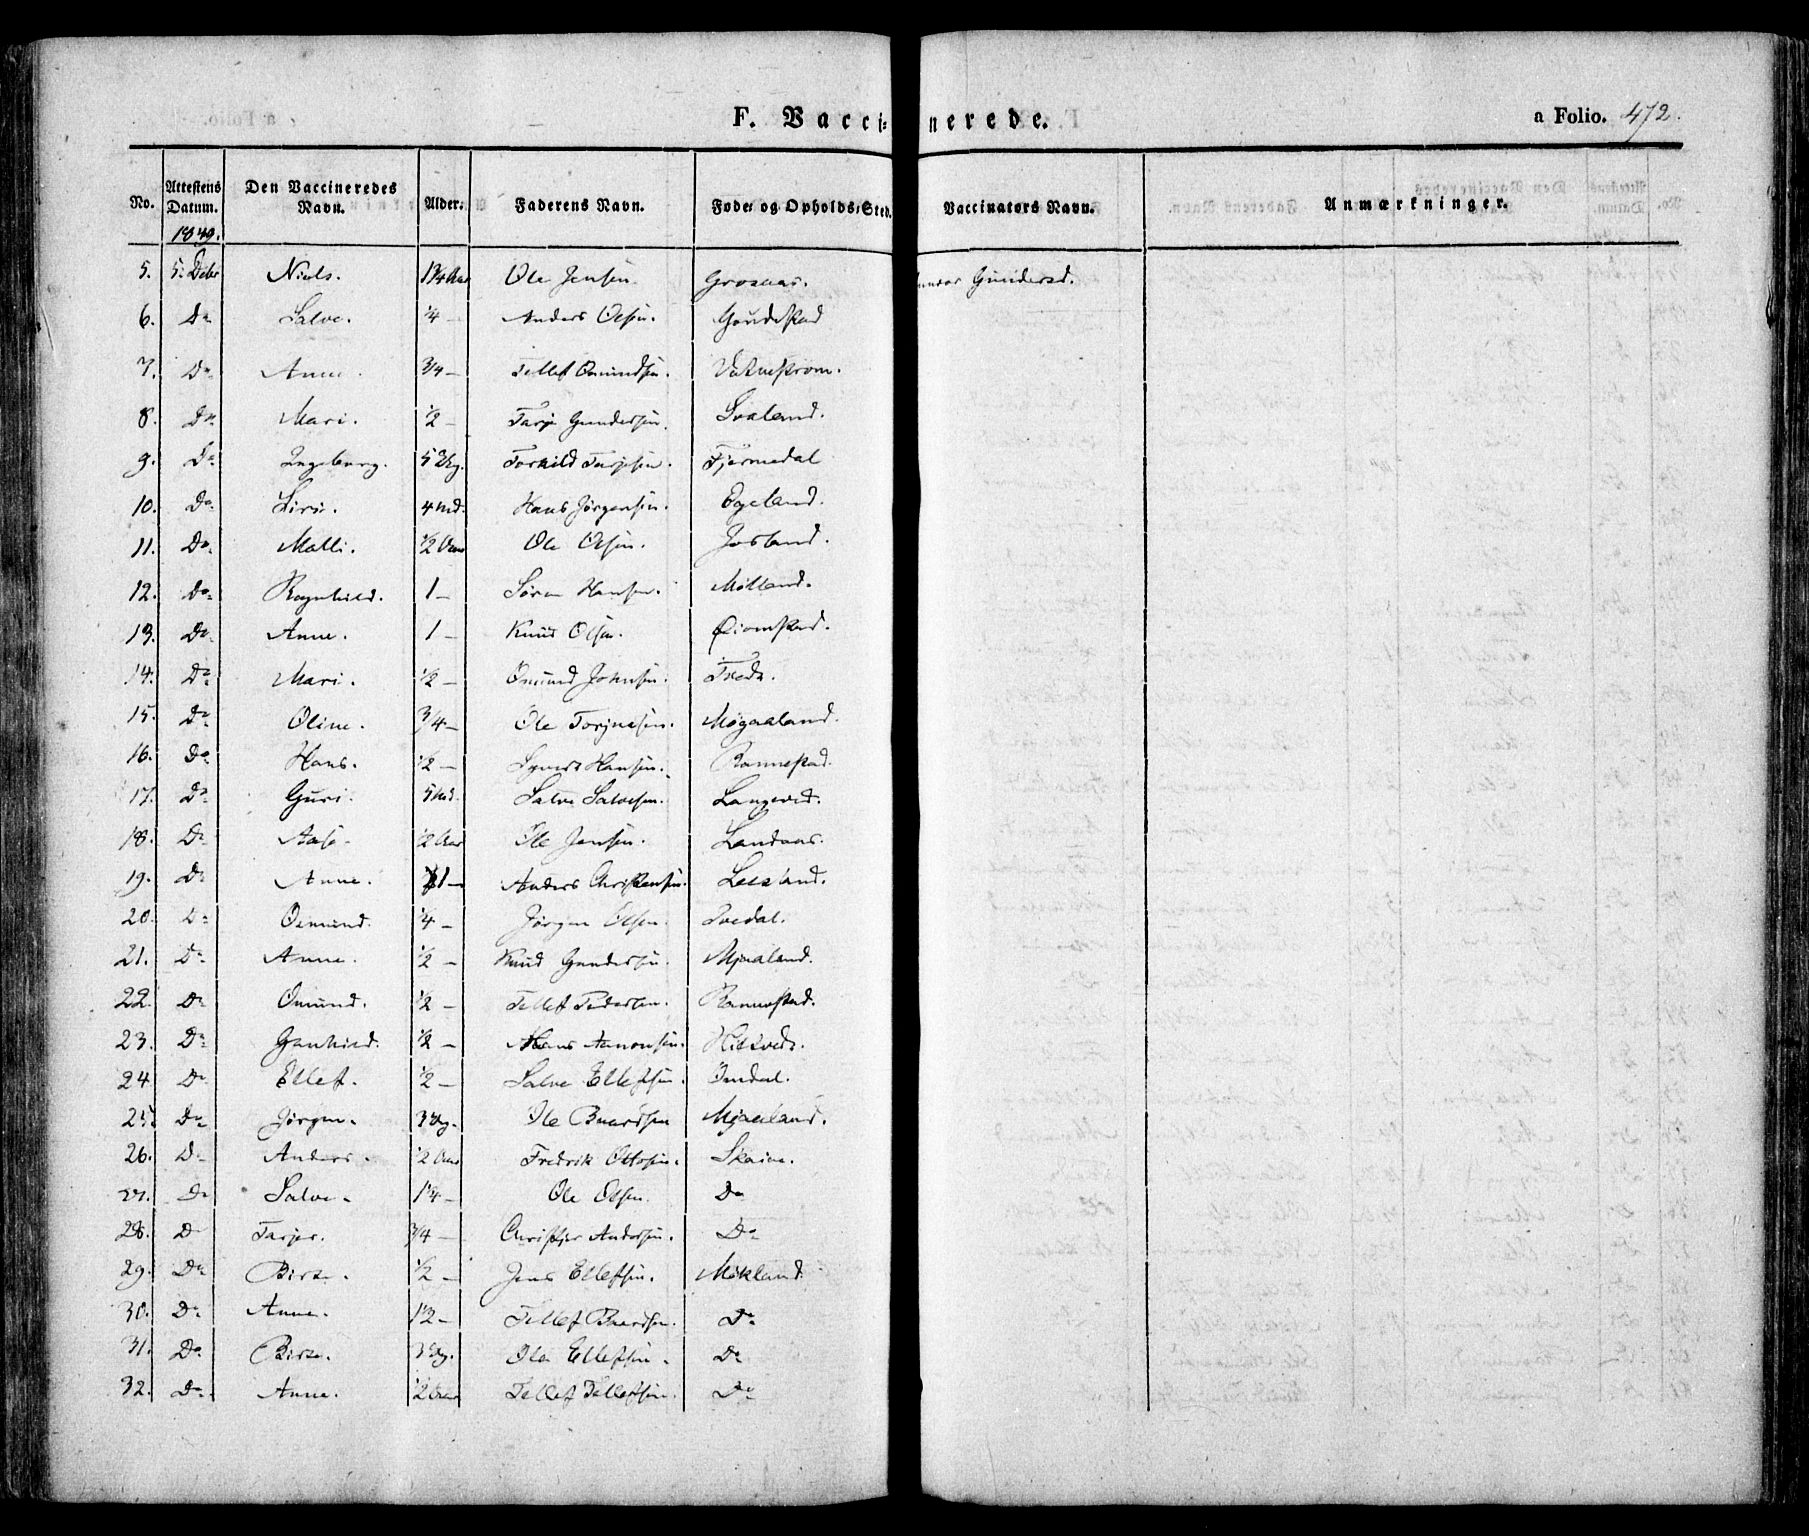 F. Vacci-nerede.
a Folio. 472.
No. Attestens Datum. Den Vaccineredes Navn. Alder. Faderens Navn. Føde- og Opholds-Sted. Vaccinators Navn. Anmærkninger.
1849.
5. 5. Deber Niels. 1¼ Aar Ole Jensen. Grosaas. Gundersd.
6. Do Salve. ¼ — Anders Olsen. Goudestad
7. Do Anne. ¾ — Tellef Omundsen. Vatnestrøm.
8. Do Mari. ½ — Tarje Gundersen. Svaland.
9. Do Ingeborg. 5 Torkild Tarjesen. Tjermedal
10. Do Siri. 4 Md. Hans Jørgensen. Egeland.
11. Do Malli. ½ Aar Ole Olsen. Josland.
12. Do Ragnhild. 1 — Søren Hansen. Mølland.
13. Do Anne. 1 — Knud Olsen.
14. Do Mari. ½ — Omund Johnsen. Tvede.
15. Do Oline. ¾ — Ole Torjusen. Møgaaland.
16. Do Hans. ½ — Hansen. Rannestad.
17. Do Guri. 5 Md. Salve Salvesen. Langeved.
18. Do Aase. ½ Aar Ole Jensen. Landaas.
19. Do Anne. 1 — Anders Christensen. Lesland.
20. Do Osmund. ¼ — Jørgen Olsen. Ivedal.
21. Do Anne. ½ — Knud Gundersen. Mjaaland.
22. Do Omund. ½ — Tellef Pedersen. Rannestad.
23. Do Gunhild. ½ — Hans Aanonsen. Hitsveds.
24. Do Ellef. ½ — Salve Ellefsen. Omdal.
25. Do Jørgen. 3 Ole Baardsen Mjaaland.
26. Do Anders. ½ Aar Fredrik Ottosen. Skaine.
27. Do Salve. 1¼ — Ole Olsen. Do
28. Do Tarjer. ¾ — Christjer Andersen. Do
29. Do Birte. ½ — Jens Ellefsen. Møkland.
30. Do Anne. 1½ — Tellef Baardsen. Do
31. Do Birte. 3 Ole Ellefsen. Do
32. Do Anne. ½ Aar Tellef Tellefsen. Do